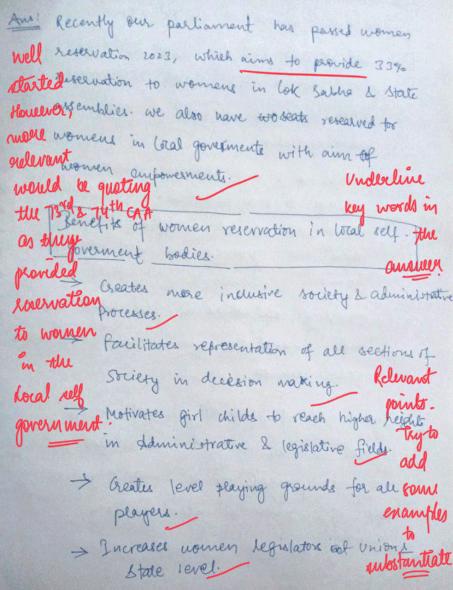 Ans: Recently our parliament has passed women
reservation 2023, which aims to provide 33%
reservation to womens in Lok Sabha & State
assemblies. we also have seats reserved for
womens in local goverments with aim of
women empowerments.
Benefits of women reservation in local self-
goverment bodies.
→ Creates more inclusive society & administrative
processes.
→ Facilitates representation of all sections of
society in decision making.
→ Motivates girl childs to reach higher heights
in administrative & legislative fields.
→ Creates level playing grounds for all
players.
→ Increases women legislators of union &
State level.
well
started
However,
more
relevant
would be quoting
the 73rd & 74th CAA
as they
provided
reservation
to women
in the
Local self
government.
Underline
key words in
the
answer
Relevant
points.
Try to
add
some
examples
to
substantiate